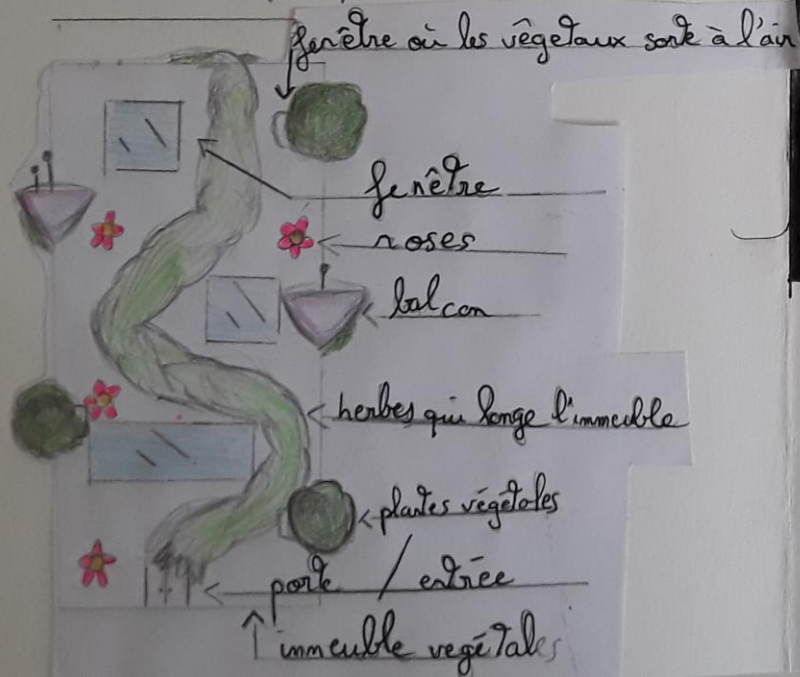 fenêtre où les vêgetaux sort à l'air
fenêtre
roses
balcon
herbes qui longe l'immeuble
plantes végétales
porte / entrée
immeuble vegétales